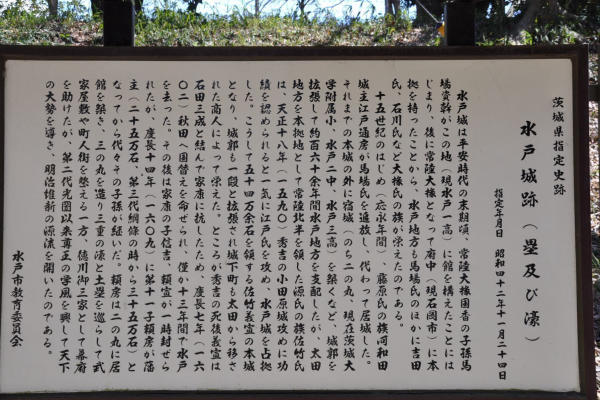 茨城県指定史跡
水戸城跡(塁及び濠)
指定年月日 昭和四十二年十一月二十四日
水戸城は平安時代の末期頃、常陸大掾国香の子孫馬
場資幹がこの地(現水戸一高)に館を構えたことには
じまり、後に常陸大掾となって府中(現石岡市)に本
拠を持ったことから、水戸地方も馬場氏のほかに吉田
氏、石川氏など大掾氏の族が栄えたのである。
十五世紀のはじめ(応永年間)、藤原氏の族河和田
城主江戸通房が馬場氏を追放し、代わって居城した。
それまでの本城の外に宿城(のち二の丸、現在茨城大
学附属小、水戸二中、水戸三高)を築くなど、城郭を
拡張して約百六十余年間水戸地方を支配したが、太田
地方を本拠地として常陸北半を領した源氏の族佐竹氏
は、天正十八年(一五九〇)秀吉の小田原城攻めに功
績を認められると一気に江戸氏を攻め、水戸城を占拠
した。こうして五十四万余石を領する佐竹義宣の本城
となり、城郭も一段と拡張され城下町も太田から移さ
れた商人によって栄えた。ところが秀吉の死後義宣は
石田三成と結んで家康に抗したため、慶長七年(一六
〇二)秋田へ国替えを命ぜられ、僅か十三年間で水戸
を去った。その後は家康の子信吉、頼宣が一時封ぜら
れたが、慶長十四年(一六〇九)に第十一子頼房が藩
主(二十五万石、第三代綱條の時から三十五万石)と
なってから代々その子孫が継いだ。頼房は二の丸に居
館を築き、三の丸を造り三重の濠と土塁を巡らして武
家屋敷や町人街を整える一方、徳川御三家として幕府
を助けたが、第二代光圀以来尊王の学風を興して天下
の大勢を導き、明治維新の源流を開いたのである。
水戸市教育委員会